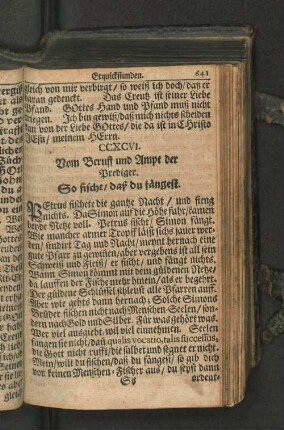 Erquickstunden. 641
gleich von mir verbirgt / so weiß ich doch / daß er
daran gedenckt. Das Creutz ist seiner Liebe
Pfand. GOttes Hand und Pfand muß nicht
triegen. Ich bin gewiß / daß mich nichts scheiden
kan von der Liebe GOttes / die da ist in CHristo
JEsu / meinem HErrn.
CCXCVI.
Vom Beruff und Ampt der
Prediger.
So fische / daß du fängest.
PEtrus fischete die gantze Nacht / und fieng
nichts. Da Simon auf die Höhe fuhr / kamen
beyde Netze voll. Petrus fischt / Simon fängt.
Wie mancher armer Tropff lässt sichs sauer wer-
den / studirt Tag und Nacht / meynt hernach eine
gute Pfarr zu gewinnen / aber vergebens ist all sein
Schweiß und Fleiß / er fischt / und fängt nichts.
Wann Simon kömmt mit dem güldenen Netze /
da lauffen der Fische mehr hinein / als er begehrt.
Der güldene Schlüssel schleust alle Pfarren auff.
Aber wie gehts dann hernach: Solche Simons
Brüder fischen nicht nach Menschen-Seelen / son-
dern nach Gold und Silber. Für was gehört was.
Wer viel ausgiebt wil viel einnehmen. Seelen
fangen sie nicht / dañ qualis vocatio, talis successus,
die Gott nicht rufft / die silbet und segnet er nicht.
Mein / willt du fischen / daß du fängest / so gib dich
vor keinen Menschen-Fischer aus / du seyst dann
Ss ordent-